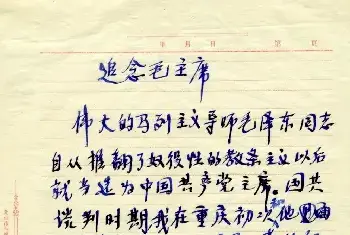 年 月 日 第 页
追念毛主席
伟大的马列主义导师毛泽东同志
自从推翻了奴役性的教条主义以后
就当选为中国共产党主席。国共
谈判时期我在重庆初次和他见面